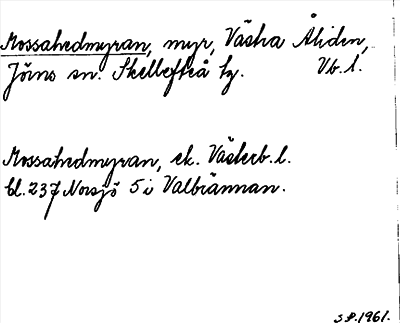 Mossahedmyran, myr, Västra Åliden,
Jörns sn. Skellefteå tg. Vb.l.
Mossahedmyran, ek. Västerb.l.
bl. 237 Norsjö 5i Valbrännan.
S.P.1961.